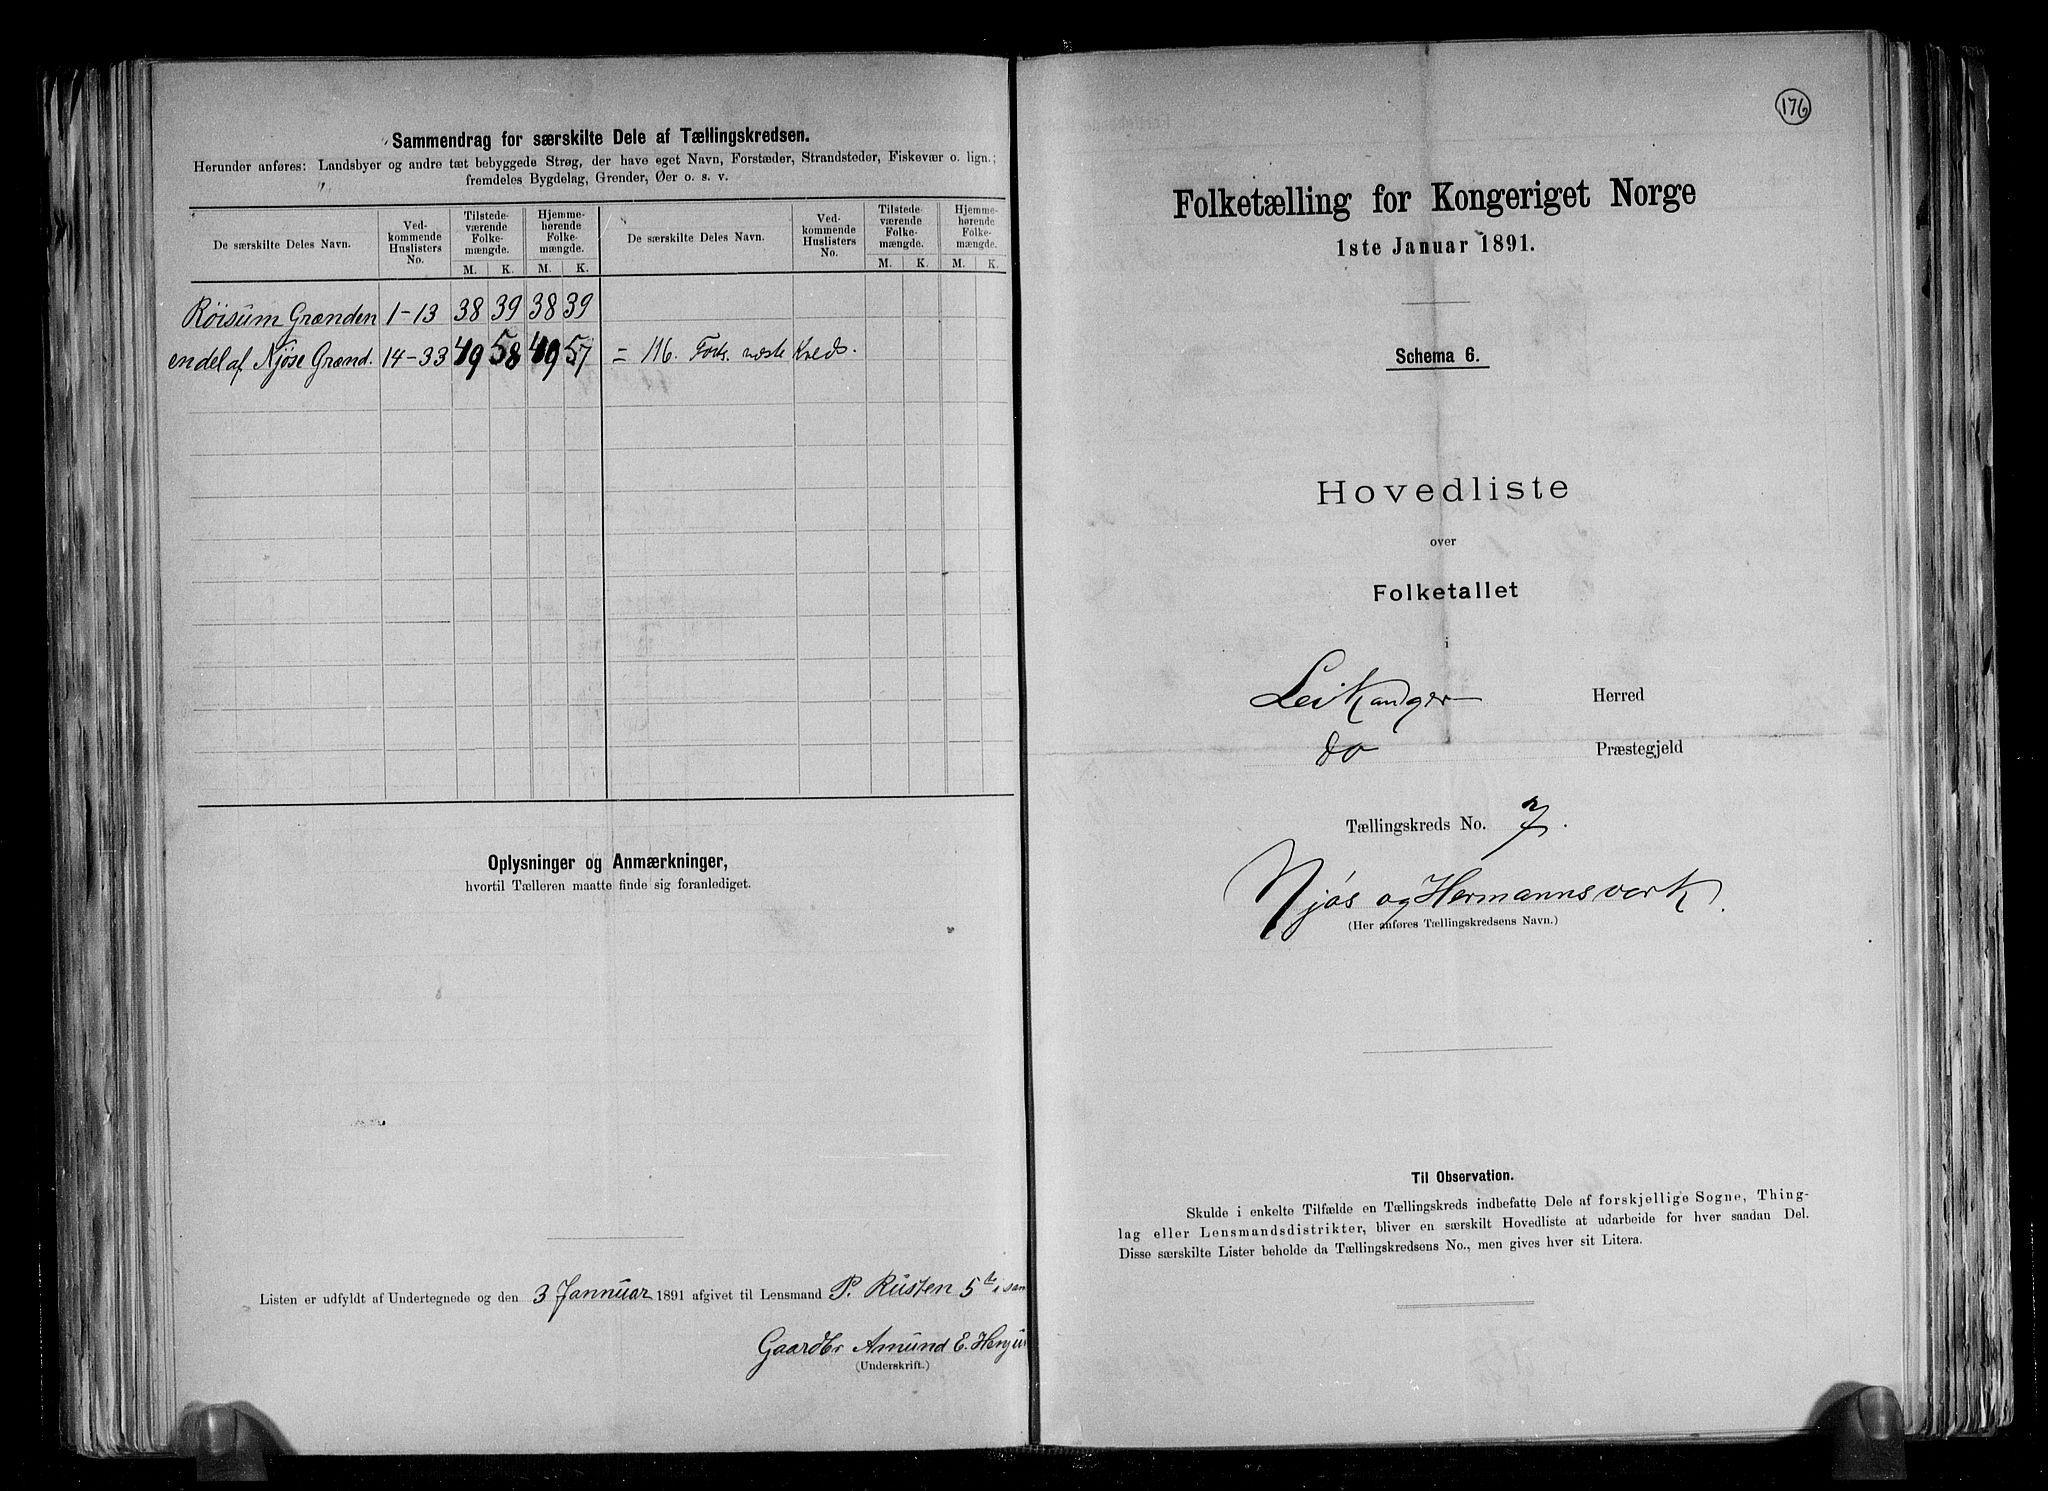 Sammendrag for særskilte Dele af Tællingskredsen.
Herunder anføres: Landsbyer og andre tæt bebyggede Strøg, der have eget Navn, Forstæder, Strandsteder, Fiskevær o. lign.;
fremdeles Bygdelag, Grender, Øer o. s. v.
De særskilte Deles Navn. Ved-kommende Huslisters No. Tilstede-værende Folke-mængde. Hjemme-hørende Folke-mængde. De særskilte Deles Navn. Ved-kommende Huslisters No. Tilstede-værende Folke-mængde. Hjemme-hørende Folke-mængde.
M. K. M. K. M. K. M. K.
Röisum Grænden 1-13 38 39 38 39
en del af Njöse Grænd. 14-33 49 58 49 57 = 116. næste Kreds.
Oplysninger og Anmærkninger,
hvortil Tælleren maatte finde sig foranlediget.
Listen er udfyldt af Undertegnede og den 3 Jannuar 1891 afgivet til Lensmand P. Rusten 5te
Gaardbr Amund E.
(Underskrift.)
176
Folketælling for Kongeriget Norge
1ste Januar 1891.
Schema 6.
Hovedliste
over
Folketallet
i
Leikanger Herred
do Præstegjeld
Tællingskreds No. 7.
Njøs og Hermannsverk.
(Her anføres Tællingskredsens Navn.)
Til Observation.
Skulde i enkelte Tilfælde en Tællingskreds indbefatte Dele af forskjellige Sogne, Thing-
lag eller Lensmandsdistrikter, bliver en særskilt Hovedliste at udarbeide for hver saadan Del.
Disse særskilte Lister beholde da Tællingskredsens No., men gives hver sit Litera.